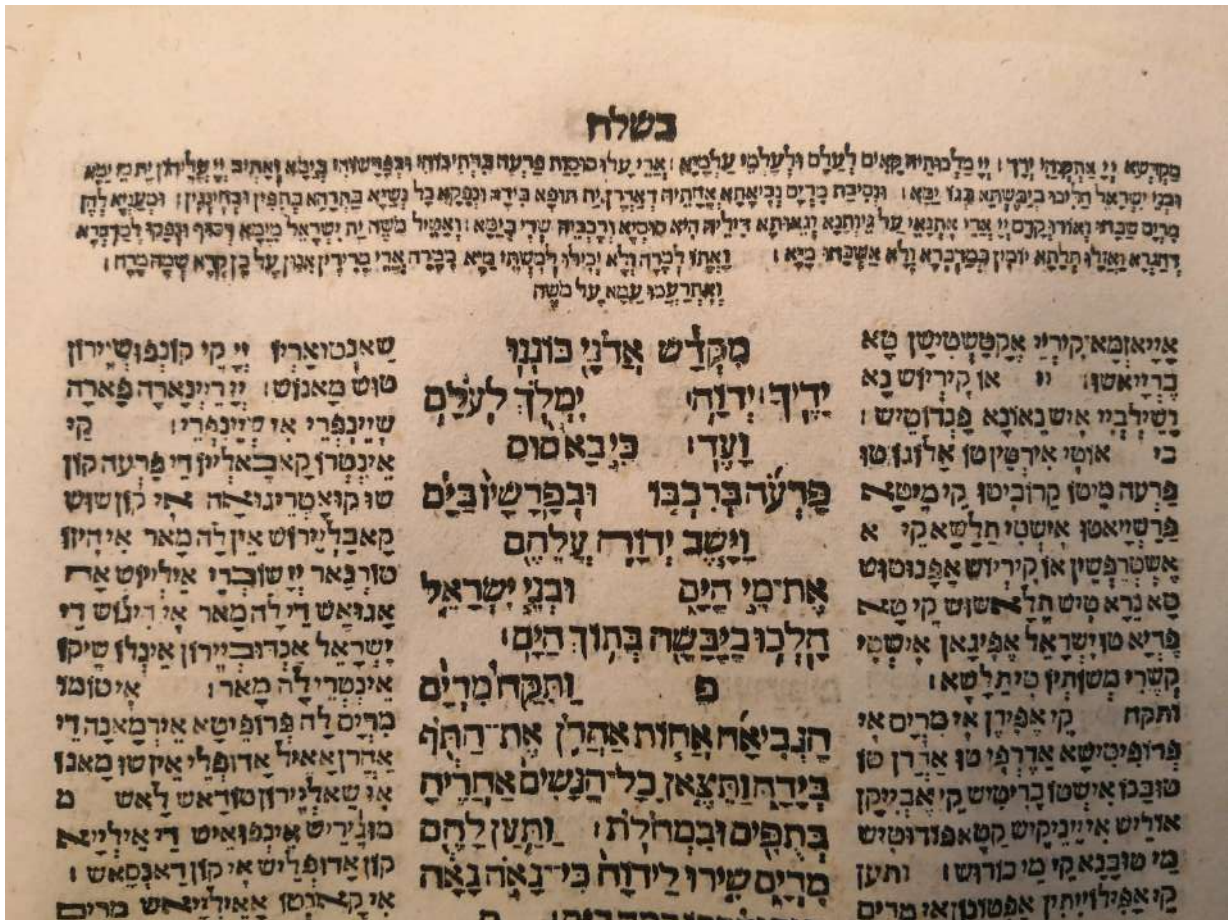 בשלח
מקדשא יי אתקנהי ידך׃ יי מלכותיה קאים לעלם ולעלמי עלמיא׃ ארי עלו סוסות פרעה ברתיכוהי ובפרשוהי בימא ואתיב יי עליהון ית מי ימא
ובני ישראל הליכו ביבשתא בגו ימא׃ ונסיבת מרים נביאתא אחתיה דאהרן ית תופא בידה ונפקא כל נשיא בתרהא בתפין ובחינגין׃ ומעניא להן
מרים שבחו ואודו קדם יי ארי אתגאי על גיותניא וגאותא דיליה היא סוסיא ורכביה שדי בימא׃ ואטיל משה ית ישראל מימא דסוף ונפקו למדברא
דחגרא ואזלו תלתא יומין במדברא ולא אשכחו מיא׃ ואתו למרה ולא יכילו למשתי מיא ממרה ארי מרירין אנון על כן קרא שמה מרה׃
ואתרעמו עמא על משה
אייאזמא קיריי אקטשטישן טא
ברייאשו׃ יי או קיריוש נא
ושילביי איש נאונא פנדוטיש׃
כי אוטי אירטין טו אלוגו טו
פרעה מיטו קרוכיטו קי מיטא
פרשייאטו אישטי תלשא קי א
אשטרפשין או קיריוש אפנוטוש
טא נרא טיש תלאשוש קי טא
פריא טו ישראל אפיגאן אישטי
קשרי משותיו טיתלשא׃
ותקח קי אפירן אי מרים אי
פרופיטישא אדרפי טו אהרן טו
טובנו אישטו כריטיש קי אבייקן
אוליש אי יניקיש קטאפודוטיש
מי טובנא קי מי כורוש׃ ותען
קי אפילוייתין אפטוטן אי מרים
מִקְּדָשׁ אֲדֹנָי כּוֹנְנוּ
יָדֶיךָ׃ יְהוָה יִמְלֹךְ לְעֹלָם
וָעֶד׃ כִּי בָא סוּס
פַּרְעֹה בְּרִכְבּוֹ וּבְפָרָשָׁיו בַּיָּם
וַיָּשֶׁב יְהוָה עֲלֵהֶם
אֶת־מֵי הַיָּם וּבְנֵי יִשְׂרָאֵל
הָלְכוּ בַיַּבָּשָׁה בְּתוֹךְ הַיָּם׃
פ וַתִּקַּח מִרְיָם
הַנְּבִיאָה אֲחוֹת אַהֲרֹן אֶת־הַתֹּף
בְּיָדָהּ וַתֵּצֶאןָ כָל־הַנָּשִׁים אַחֲרֶיהָ
בְּתֻפִּים וּבִמְחֹלֹת׃ וַתַּעַן לָהֶם
מִרְיָם שִׁירוּ לַיהוָה כִּי־גָאֹה גָּאָה
שאנטואריו יי קי קונפושיירון
טוש מאנוש׃ יי ריינארה פארה
שיינפרי אי שיינפרי׃ קי
אינטרו קאבאלייו די פרעה קון
שו קואטריגואה אי קון שוש
קאבלייירוש אין לה מאר אי היזו
טורנאר יי שוברי איליוש אה
אגואש די לה מאר אי היגוש די
ישראל אנדובייירון אינלו שיקו
אינטרי לה מאר׃ אי טומו
מרים לה פרופיטא אירמאנה די
אהרן אאיל אדופלי אין שו מאנו
אי שאליירון טודאש לאש מ
מוגיריש אינפואיש די אילייא
קון אדופליש אי קון דאנסאש׃
אי קאנטו אאילייאש מרים